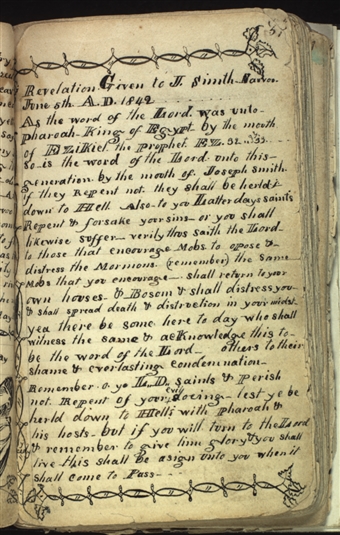 Revelation Given to J. Smith
June 5th A.D. 1842
As the word of the Lord was unto
pharoah King of Egypt by the mouth
of EZ,Kiel the Prophet EZ. 32
so is the word of the Lord unto this
generation by the mouth of Joseph Smith
if they Repent not they shall be herld
down to Hell Also to you Latter days saints
Repent & forsake your sins or you shall
likewise suffer verily thus saith the Lord
to those that encourage Mobs to opose &
distress the Mormons (remember) the same
Mobs that you encourage shall return to your
own houses & Bosom & shall distress you
& shall spread death & distruction in your midst
yea there be some here to day who shall
witness the same & acKnowledge this to
be the word of the Lord others to their
shame & everlasting condemnation
Remember o ye L.D. saints & Perish
not Repent of your evil doeing lest ye be
herld down to Hell with pharoah &
his hosts but if you will turn to the Lord
& remember to give him glory & you shall
live this shall be a sign unto you when it
shall come to Pass